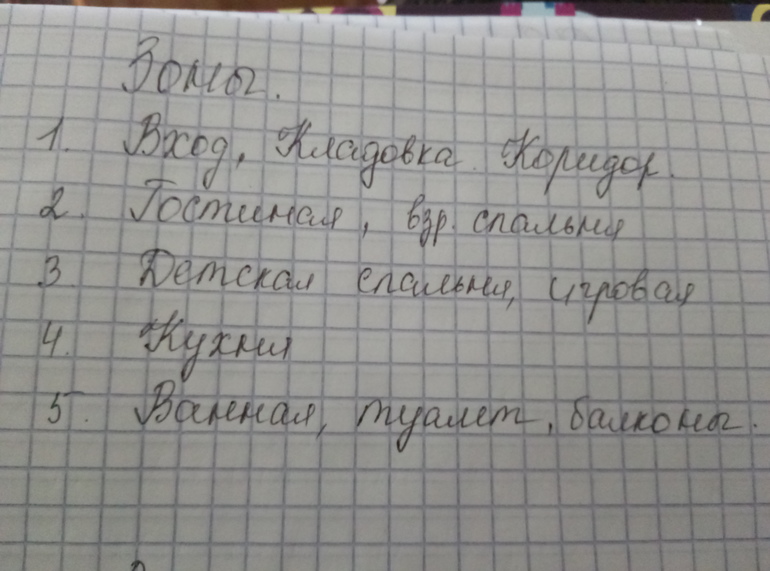 Зоны.
1. Вход, Кладовка. Коридор.
2. Гостиная, взр. спальня
3. Детская спальня, игровая
4. Кухня
5. Ванная, туалет, балконы.